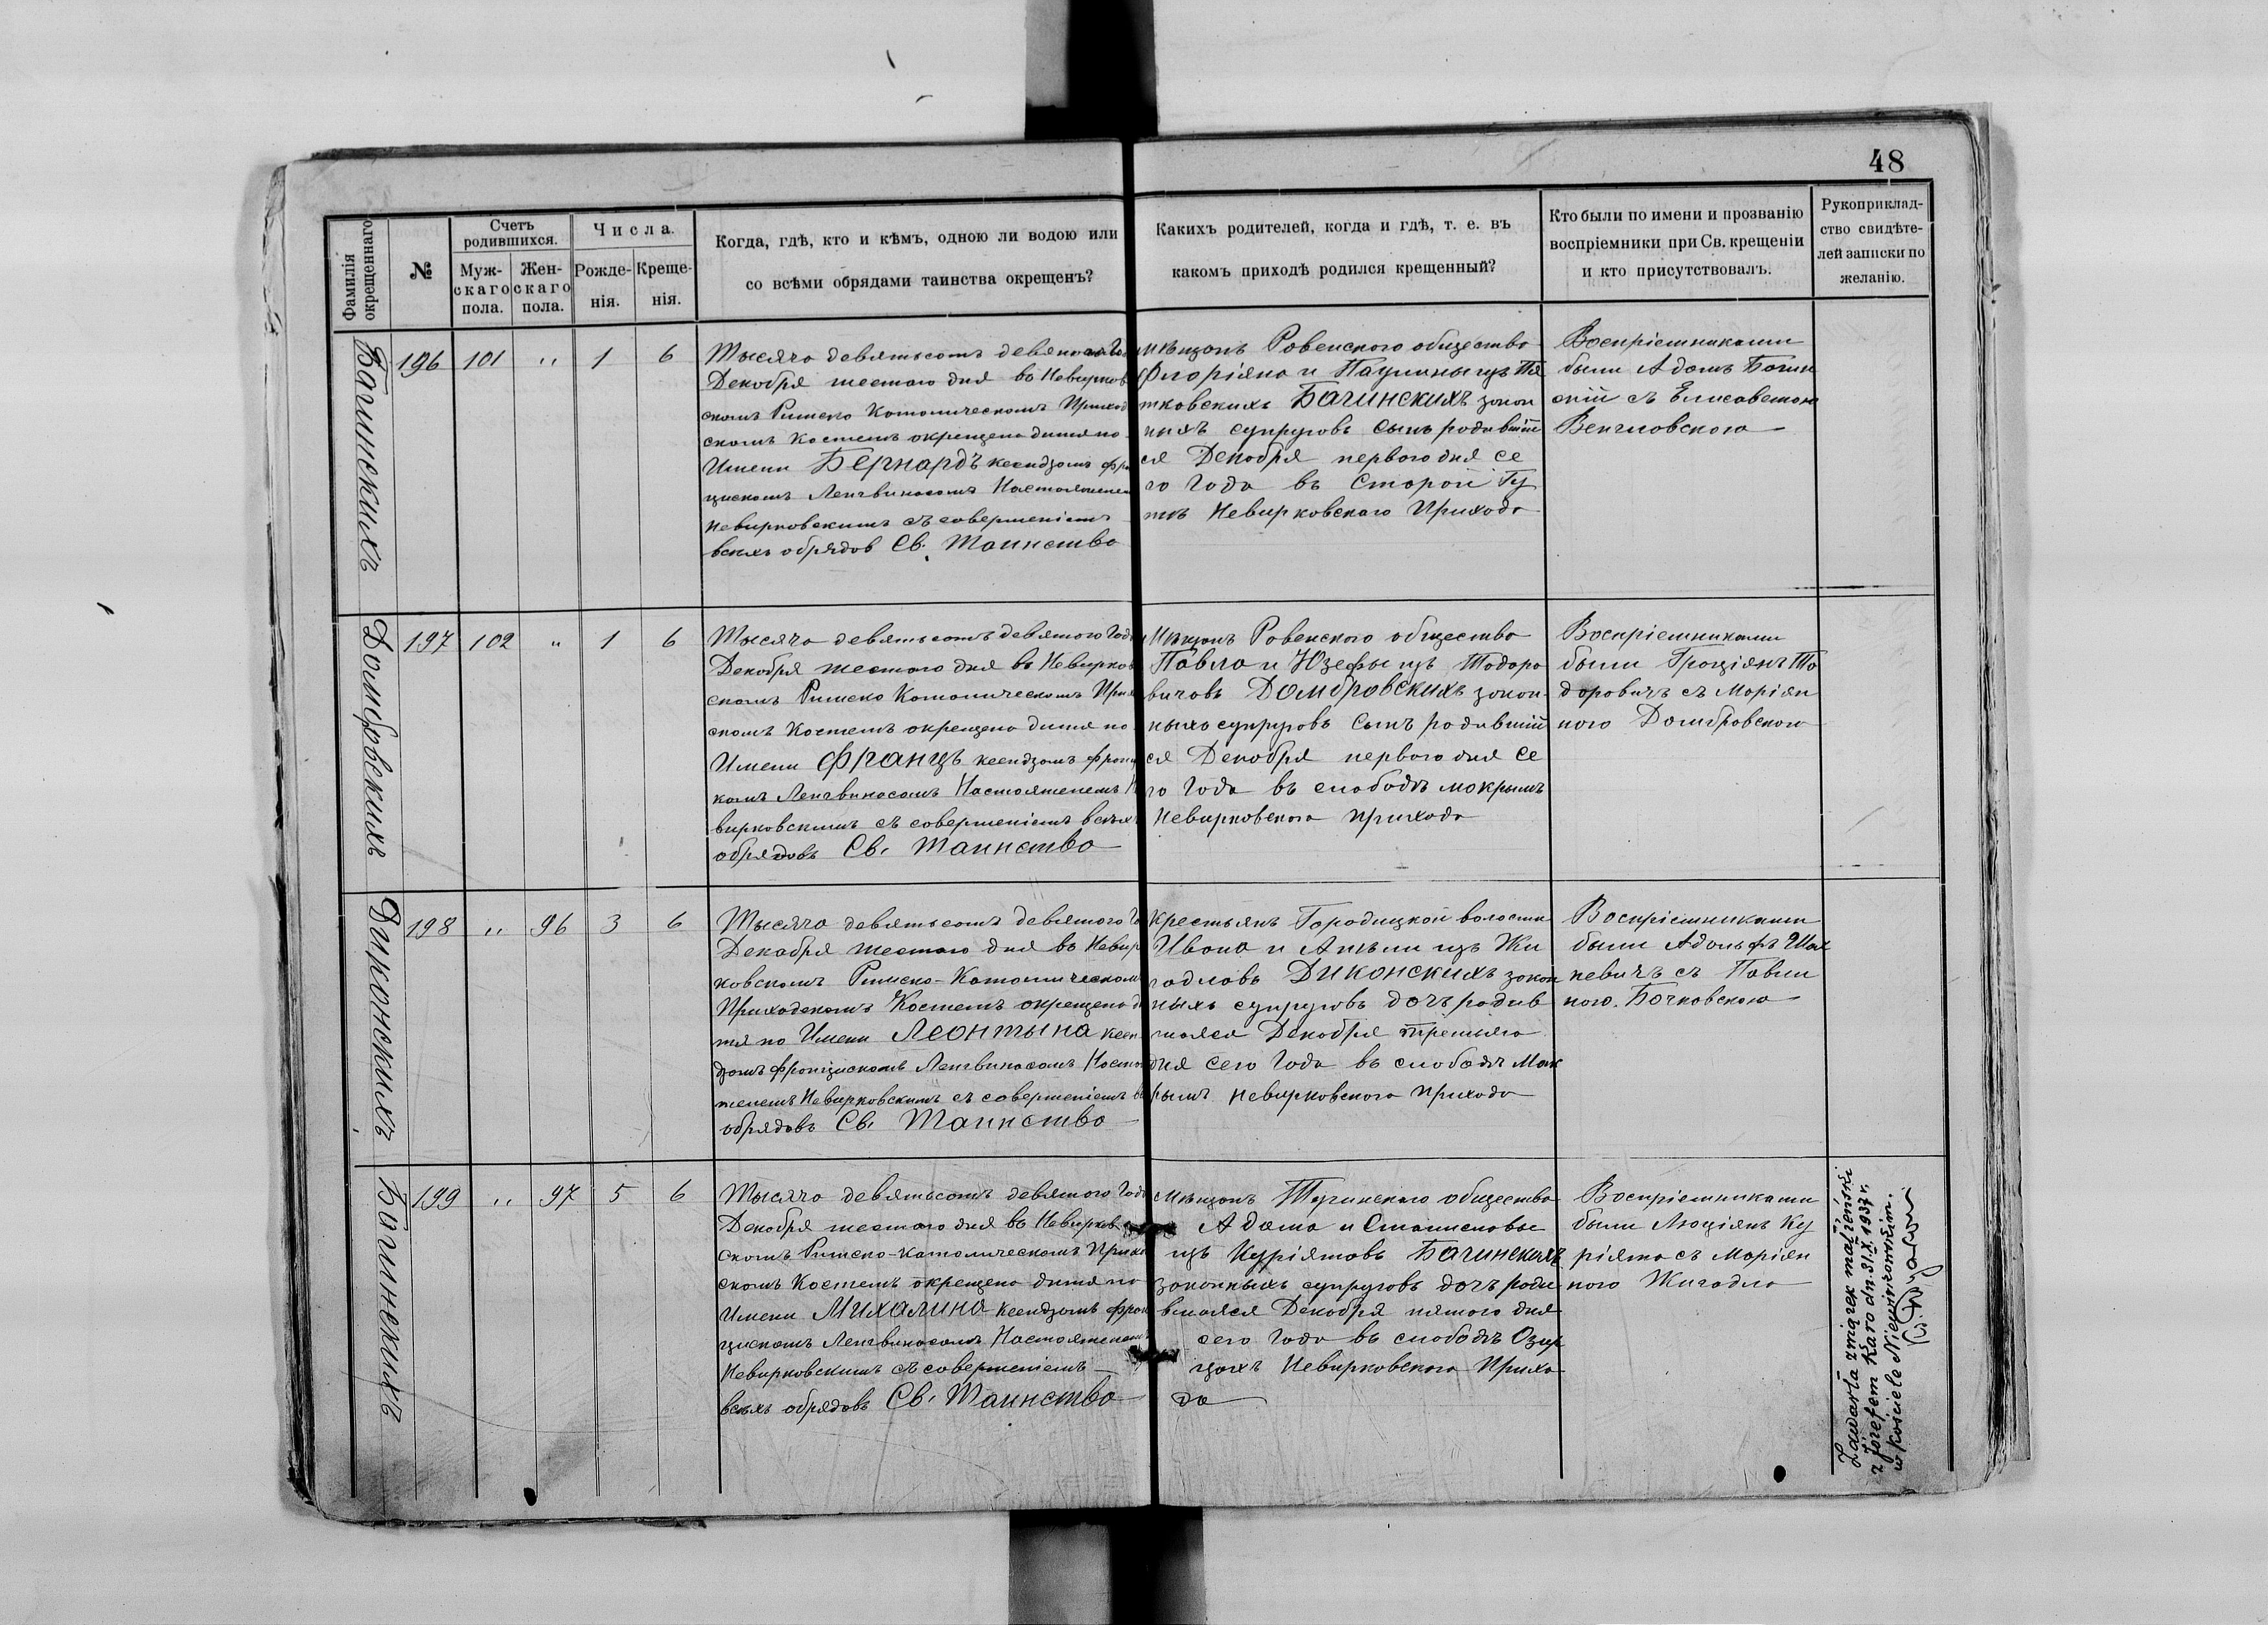 48
Фамилія
окрещеннаго
№
Счетъ
родившихся.
Муж-
скаго
пола.
Жен-
скаго
пола.
Числа.
Рожде-
нія.
Креще-
нія.
Когда, гдѣ, кто и кѣмъ, одною ли водою или
со всѣми обрядами таинства окрещенъ?
Какихъ родителей, когда и гдѣ, т. е. въ
какомъ приходѣ родился крещенный?
Кто были по имени и прозванію
воспріемники при Св. крещеніи
и кто присутствовалъ.
Рукоприклад-
ство свидѣте-
лей записки по
желанію.
Багинскихъ
196 101 " 1 6
Тысяча девятьсотъ девятаго Го
Декабря шестаго дня въ Невирков
скомъ Римско Католическомъ Приход
скомъ Костелѣ окрещено дитя по
Имени Бернардъ ксендзомъ Фран
цискомъ Ленгвинасомъ Настоятелем
Невирковскимъ съ совершеніемъ
всѣхъ обрядов Св. Таинства
мѣщанъ Ровенскаго общества
Флоріяна и Паулины изъ Пя
тковскихъ Багинскихъ закон
ныхъ супруговъ сынъ родившій
ся Декабря перваго дня се
го Года въ Старой Гу
тѣ Невирковскаго Прихода
Воспріемниками
были Адамъ Багин
скій съ Елисаветою
Венгловскою
Домбровскихъ
197 102 " 1 6
Тысяча девятьсотъ девятаго Года
Декабря шестаго дня въ Невирков
скомъ Римско Католическомъ Прих
скомъ Костелѣ окрещено дитя по
Имени Францъ ксендзомъ Франци
комъ Ленгвинасомъ Настоятелемъ Н
вирковскимъ съ совершеніемъ всѣхъ
обрядовъ Св. Таинства
Мѣщанъ Ровенскаго общества
Павла и Юзефы изъ Тодоро
вичовъ Домбровскихъ закон
ныхъ супруговъ Сынъ родившій
ся Декабря перваго дня Се
го Года въ слободѣ Мокрымъ
Невирковскаго прихода
Воспріемниками
были Граціянъ То
доровичъ съ Маріян
ною Домбровскою
Диконскихъ
198 " 96 3 6
Тысяча девятьсотъ девятаго Го
Декабря шестаго дня въ Невир
ковскомъ Римско-Католическомъ
Приходскомъ Костелѣ окрещено д
тя по Имени Леонтына ксен
дзомъ Францискомъ Ленгвинасомъ Насто
телемъ Невирковскимъ съ совершеніемъ в
обрядовъ Св. Таинства
Крестьянъ Городицкой волости
Ивана и Анѣли изъ Жи
гадловъ Диконскихъ закон
ныхъ супруговъ дочъ родив
шаяся Декабря третьяго
дня сего Года въ слободѣ Мок
рымъ Невирковскаго прихода
Воспріемниками
были Адольфъ
кевичъ съ Павли
ною Бочковскою
Багинскихъ
199 " 97 5 6
Тысяча девятьсотъ девятаго Года
Декабря шестаго дня въ Невирков
скомъ Римско-Католическомъ Прихо
скомъ Костелѣ окрещено дитя по
Имени Михалина ксендзомъ Фран
цискомъ Ленгвинасомъ Настоятелем
Невирковскимъ съ совершеніемъ
всѣхъ обрядовъ Св. Таинства
Мѣщанъ Тучинскаго общества
Адама и Станиславы
изъ Куріятовъ Багинскихъ
законныхъ супруговъ дочъ роди
вшаяся Декабря пятого дня
сего Года въ слободѣ Озир
цахъ Невирковскаго Прихо
да
Воспріемниками
были Люціянъ Ку
ріята съ Маріян
ною Жигадло
Zawarła związek małżeński
z Józefem Karo dn. 31.X.1937 r.
w kościele Niewirkowskim.